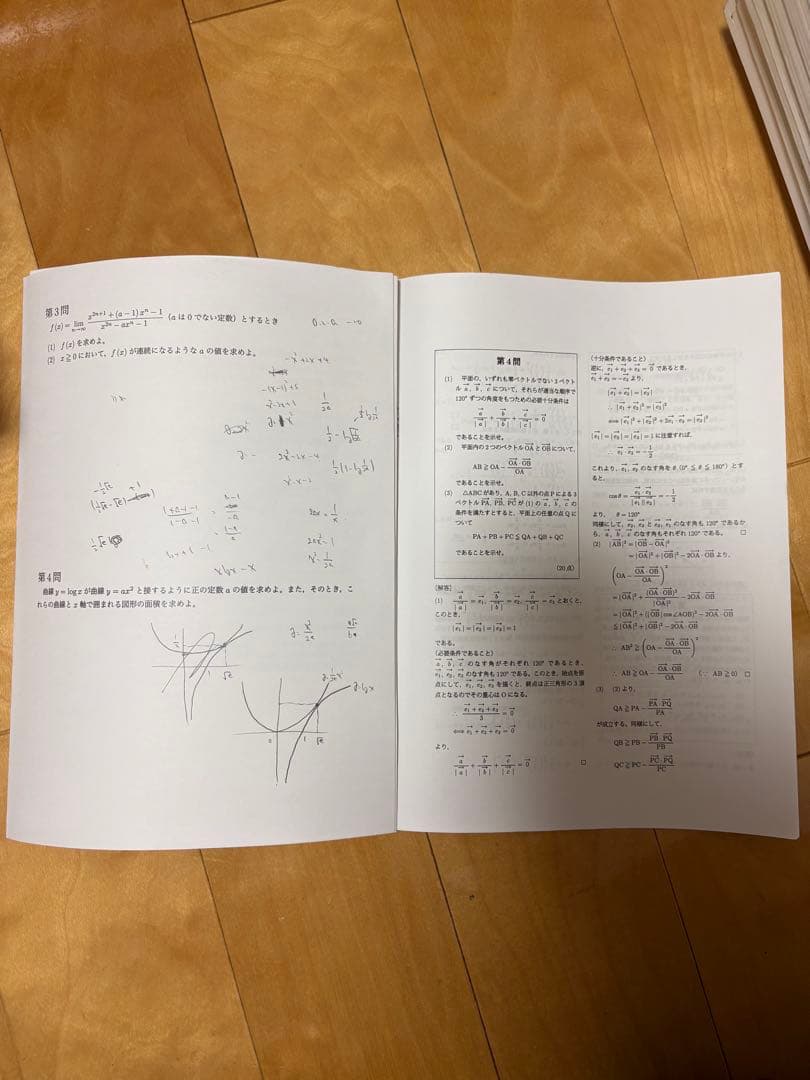 第3問
f(x) = lim_{n→∞} (x^{2n+1} + (a−1)x^n − 1)/(x^{2n} − ax^n − 1) (aは0でない定数) とするとき
(1) f(x)を求めよ。
(2) x≧0において，f(x)が連続になるようなaの値を求めよ。
−x²+2x+4
2x²−2x−4
x²−x−2
20x = 1/x
x log x − x
第4問
曲線 y = log x が曲線 y = ax² と接するように正の定数aの値を求めよ。また，そのとき，こ
れらの曲線とx軸で囲まれる図形の面積を求めよ。
y = x²/2e
1 √e
y=log x
0 1 √e
第4問
(1) 平面の，いずれも零ベクトルでない3ベクト
ル a→, b→, c→ について，それらが適当な順序で
120°ずつの角度をもつための必要十分条件は
a→/|a→| + b→/|b→| + c→/|c→| = 0→
であることを示せ。
(2) 平面内の2つのベクトル OA→ と OB→ について，
AB ≧ OA − (OA→・OB→)/OA
であることを示せ。
(3) △ABCがあり，A, B, C以外の点Pによる3
ベクトル PA→, PB→, PC→ が(1)の a→, b→, c→ の
条件を満たすとすると，平面上の任意の点Qに
ついて
PA + PB + PC ≦ QA + QB + QC
であることを示せ。
(20点)
[解答]
(1) a→/|a→| = e₁→, b→/|b→| = e₂→, c→/|c→| = e₃→ とおくと，
このとき，
|e₁→| = |e₂→| = |e₃→| = 1
である。
(必要条件であること)
a→, b→, c→ のなす角がそれぞれ120°であるとき，
e₁→, e₂→, e₃→ のなす角も120°である。このとき，始点を原
点にして，e₁→, e₂→, e₃→ を描くと，終点は正三角形の3頂
点となるのでその重心はOになる。
∴ (e₁→ + e₂→ + e₃→)/3 = 0→
⟺ e₁→ + e₂→ + e₃→ = 0→
より，
a→/|a→| + b→/|b→| + c→/|c→| = 0→ □
(十分条件であること)
逆に，e₁→ + e₂→ + e₃→ = 0→ であるとき，
e₁→ + e₂→ = −e₃→ より，
|e₁→ + e₂→| = |e₃→|
∴ |e₁→ + e₂→|² = |e₃→|²
⟺ |e₁→|² + |e₂→|² + 2e₁→・e₂→ = |e₃→|²
|e₁→| = |e₂→| = |e₃→| = 1 に注意すれば，
∴ e₁→・e₂→ = −1/2
これより，e₁→, e₂→ のなす角をθ (0° ≦ θ ≦ 180°) とす
ると，
cosθ = (e₁→・e₂→)/(|e₁→||e₂→|) = −1/2
より， θ = 120°
同様にして，e₂→, e₃→ と e₃→, e₁→ のなす角も120°であるか
ら，a→, b→, c→ のなす角もそれぞれ120°である。 □
(2) |AB→|² = |OB→ − OA→|²
= |OA→|² + |OB→|² − 2OA→・OB→ より，
(OA − (OA→・OB→)/OA)²
= |OA→|² + (OA→・OB→)²/|OA→|² − 2OA→・OB→
= |OA→|² + (|OB→|cos∠AOB)² − 2OA→・OB→
≦ |OA→|² + |OB→|² − 2OA→・OB→
∴ AB² ≧ (OA − (OA→・OB→)/OA)²
∴ AB ≧ OA − (OA→・OB→)/OA (∵ AB ≧ 0) □
(3) (2)より，
QA ≧ PA − (PA→・PQ→)/PA
が成立する。同様にして，
QB ≧ PB − (PB→・PQ→)/PB
QC ≧ PC − (PC→・PQ→)/PC